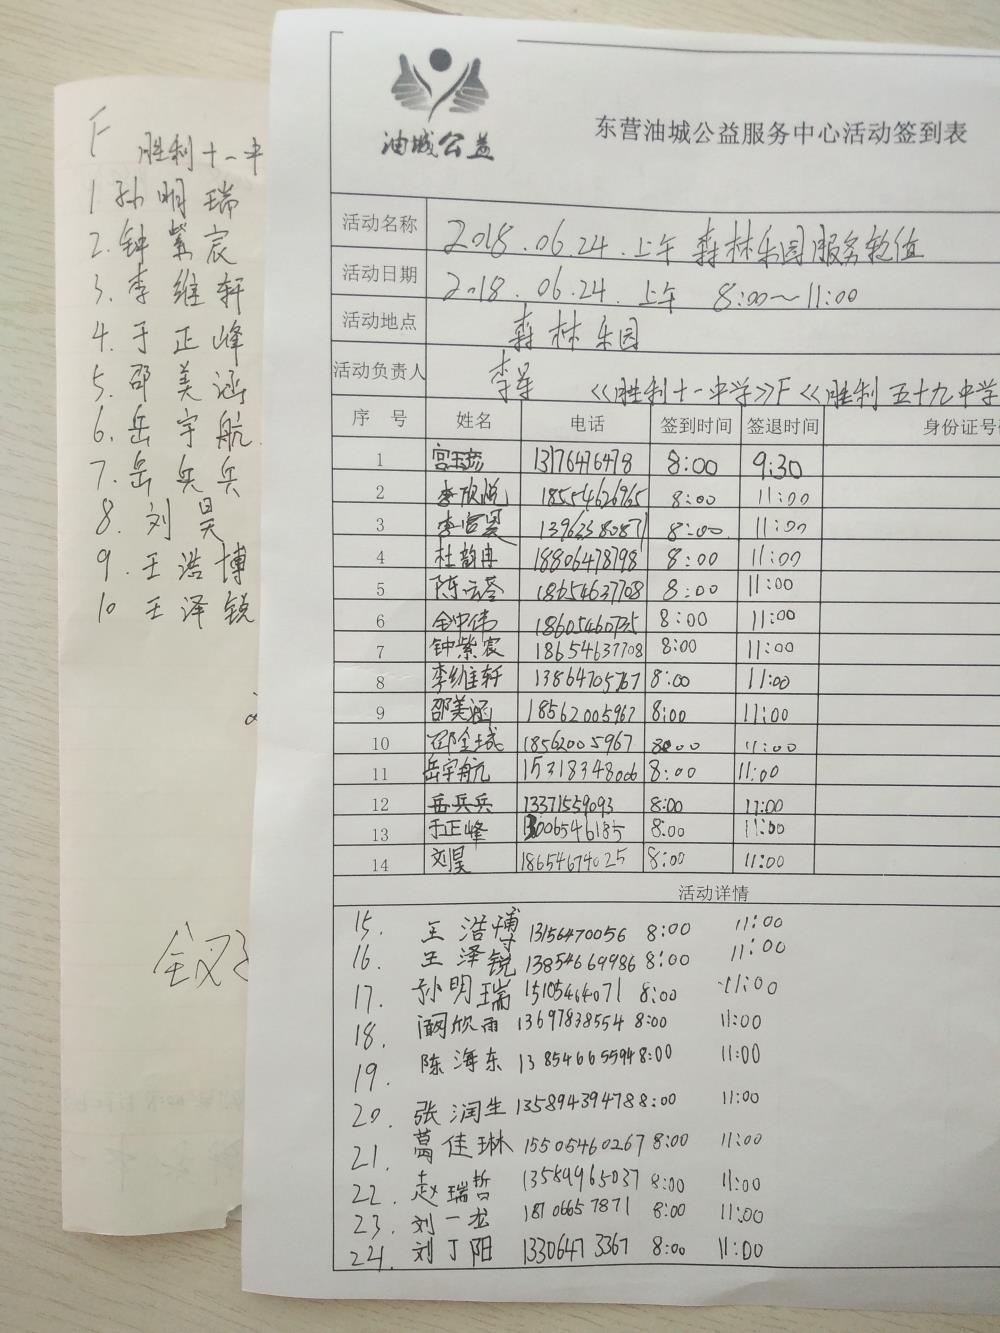 F 胜利十一中
1 孙明瑞
2. 钟紫宸
3. 李维轩
4. 于正峰
5. 邵美涵
6. 岳宇航
7. 岳兵兵
8. 刘昊
9. 王浩博
10 王泽锐
油城公益
东营油城公益服务中心活动签到表
活动名称 2018.06.24.上午 森林乐园服务执值
活动日期 2018.06.24.上午 8:00~11:00
活动地点 森林乐园
活动负责人 李军 《胜利十一中学》F《胜利五十九中学
序号 姓名 电话 签到时间 签退时间 身份证号
1 13176476478 8:00 9:30
2 李欣悦 18554626965 8:00 11:00
3 8:00 11:00
4 杜韵冉 18806478798 8:00 11:00
5 18654637708 8:00 11:00
6 18605460735 8:00 11:00
7 钟紫宸 18654637708 8:00 11:00
8 李维轩 13864705767 8:00 11:00
9 邵美涵 18562005967 8:00 11:00
10 邵金城 18562005967 8:00 11:00
11 岳宇航 15318348006 8:00 11:00
12 岳兵兵 13371559093 8:00 11:00
13 于正峰 13006546185 8:00 11:00
14 刘昊 18654674025 8:00 11:00
活动详情
15. 王浩博 13156470056 8:00 11:00
16. 王泽锐 13854669986 8:00 11:00
17. 孙明瑞 15105464071 8:00 11:00
18. 阚欣雨 13697838554 8:00 11:00
19. 陈海东 13854665594 8:00 11:00
20. 张润生 13589439478 8:00 11:00
21. 葛佳琳 15505460267 8:00 11:00
22. 赵瑞哲 13589965037 8:00 11:00
23. 刘一龙 18106657871 8:00 11:00
24. 刘丁阳 13306473367 8:00 11:00